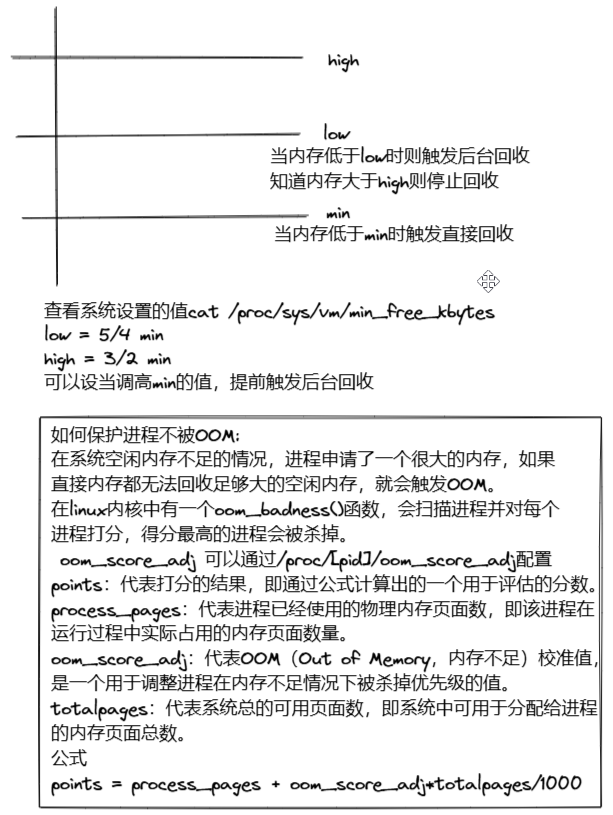 high
low
当内存低于low时则触发后台回收
知道内存大于high则停止回收
min
当内存低于min时触发直接回收
查看系统设置的值cat /proc/sys/vm/min_free_kbytes
low = 5/4 min
high = 3/2 min
可以设当调高min的值，提前触发后台回收
如何保护进程不被OOM:
在系统空闲内存不足的情况，进程申请了一个很大的内存，如果
直接内存都无法回收足够大的空闲内存，就会触发OOM。
在linux内核中有一个oom_badness()函数，会扫描进程并对每个
进程打分，得分最高的进程会被杀掉。
oom_score_adj 可以通过/proc/[pid]/oom_score_adj配置
points：代表打分的结果，即通过公式计算出的一个用于评估的分数。
process_pages：代表进程已经使用的物理内存页面数，即该进程在
运行过程中实际占用的内存页面数量。
oom_score_adj：代表OOM（Out of Memory，内存不足）校准值，
是一个用于调整进程在内存不足情况下被杀掉优先级的值。
totalpages：代表系统总的可用页面数，即系统中可用于分配给进程
的内存页面总数。
公式
points = process_pages + oom_score_adj*totalpages/1000